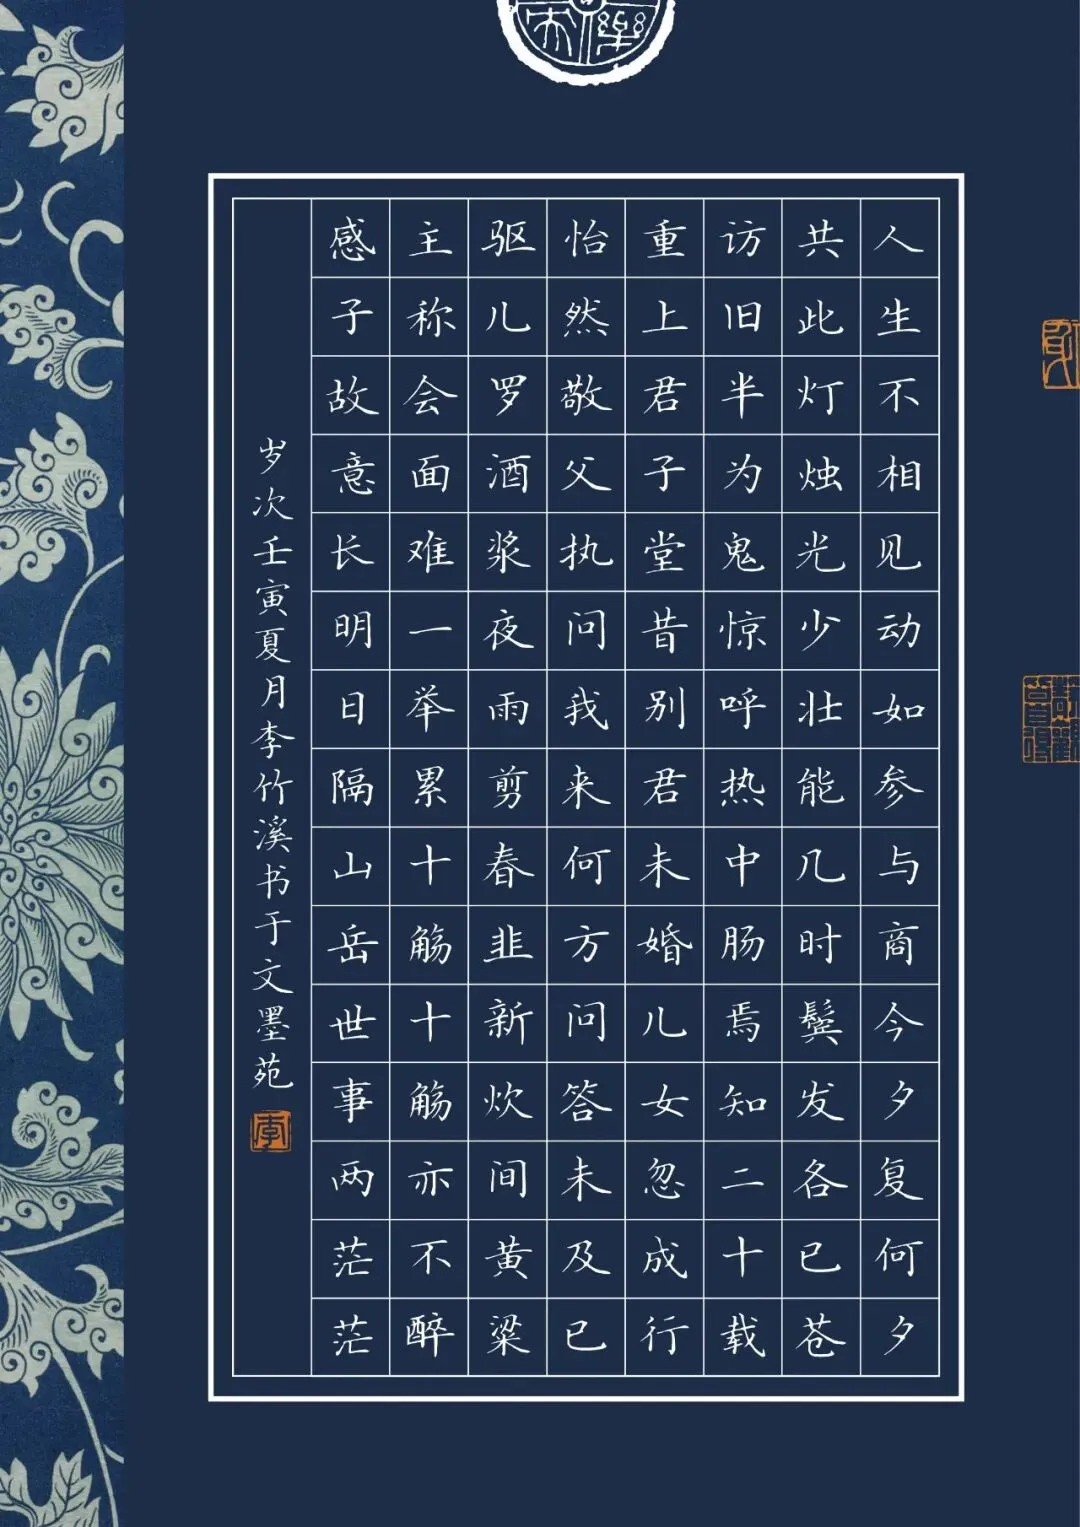 人生不相见动如参与商今夕复何夕
共此灯烛光少壮能几时鬓发各已苍
访旧半为鬼惊呼热中肠焉知二十载
重上君子堂昔别君未婚儿女忽成行
怡然敬父执问我来何方问答未及已
驱儿罗酒浆夜雨剪春韭新炊间黄粱
主称会面难一举累十觞十觞亦不醉
感子故意长明日隔山岳世事两茫茫
岁次壬寅夏月李竹溪书于文墨苑
李